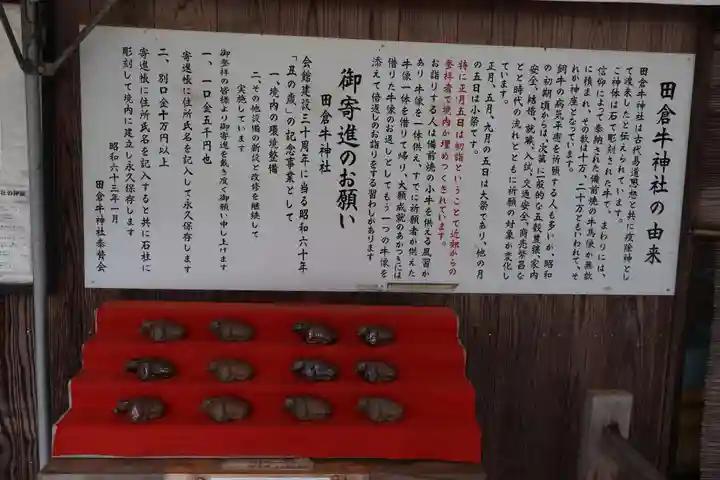 田倉牛神社の由来
田倉牛神社は古代易道思想と共に疫除神とし
て渡来したと伝えられています。
ご神体は石で彫刻された牛で、まわりには、
信仰によって奉納された備前焼の牛馬像が無数
に積まれ、その数は十万、二十万ともいわれて、そ
れが神座となっています。
飼牛の病気平癒を祈願する人も多いが、昭和
の初期頃からは、次第に一般的な五穀豊穣、家内
安全、結婚、就職、入試、交通安全、商売繁昌な
どと時代の流れとともに祈願の対象が変化し
ています。
正月、五月、九月の五日は大祭であり、他の月
の五日は小祭です。
特に正月五日は初詣ということで近郷からの
参拝者で境内か埋めつくされています。
お詣りする人は備前焼の小牛を供える風習か
あり牛像を一体供え、すでに祈願者が供えた
牛像一体を借りて帰り、大願成就のあかつきには
借りた牛像のお返しとしてもう一つの牛像を
添えて倍返しのお詣りをする習わしがあります
御寄進のお願い
田倉牛神社
会館建設三十周年に当る昭和六十年
「丑の歳」の記念事業として
一、境内の環境整備
二、その他設備の新設と改修を継続して
実施しています
御参拝の皆様より御寄進を戴き度く御願い申し上げます
一、一口金五千円也
寄進帳に住所氏名を記入して永久保存します
二、別口金十万円以上
寄進帳に住所氏名を記入すると共に石社に
彫刻して境内に建立し永久保存します
昭和六十三年一月
田倉牛神社奉賛会